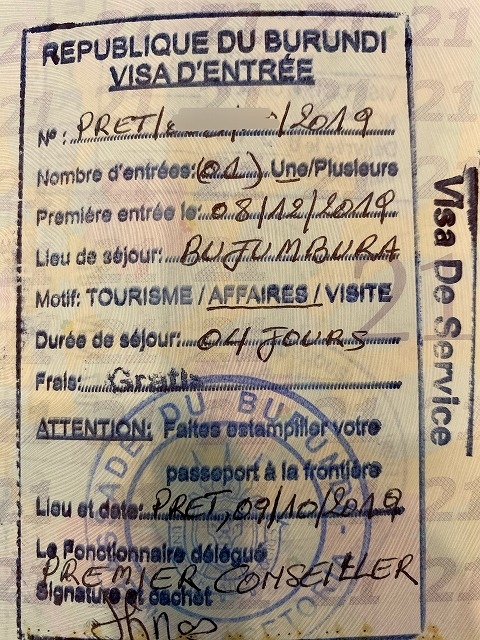 REPUBLIQUE DU BURUNDI
VISA D'ENTRÉE
N° : PRET/ /2019
Nombre d'entrées: (01) Une/Plusieurs
Première entrée le: 08/12/2019
Lieu de séjour: BUJUMBURA
Motif: TOURISME / AFFAIRES / VISITE
Durée de séjour: 04 JOURS
Frais: Gratis
ATTENTION: Faites estampiller votre
passeport à la frontière
Lieu et date: PRET, 09/10/2019
Le Fonctionnaire délégué
PREMIER CONSEILLER
Signature et cachet
Visa De Service
21
DU BURUNDI